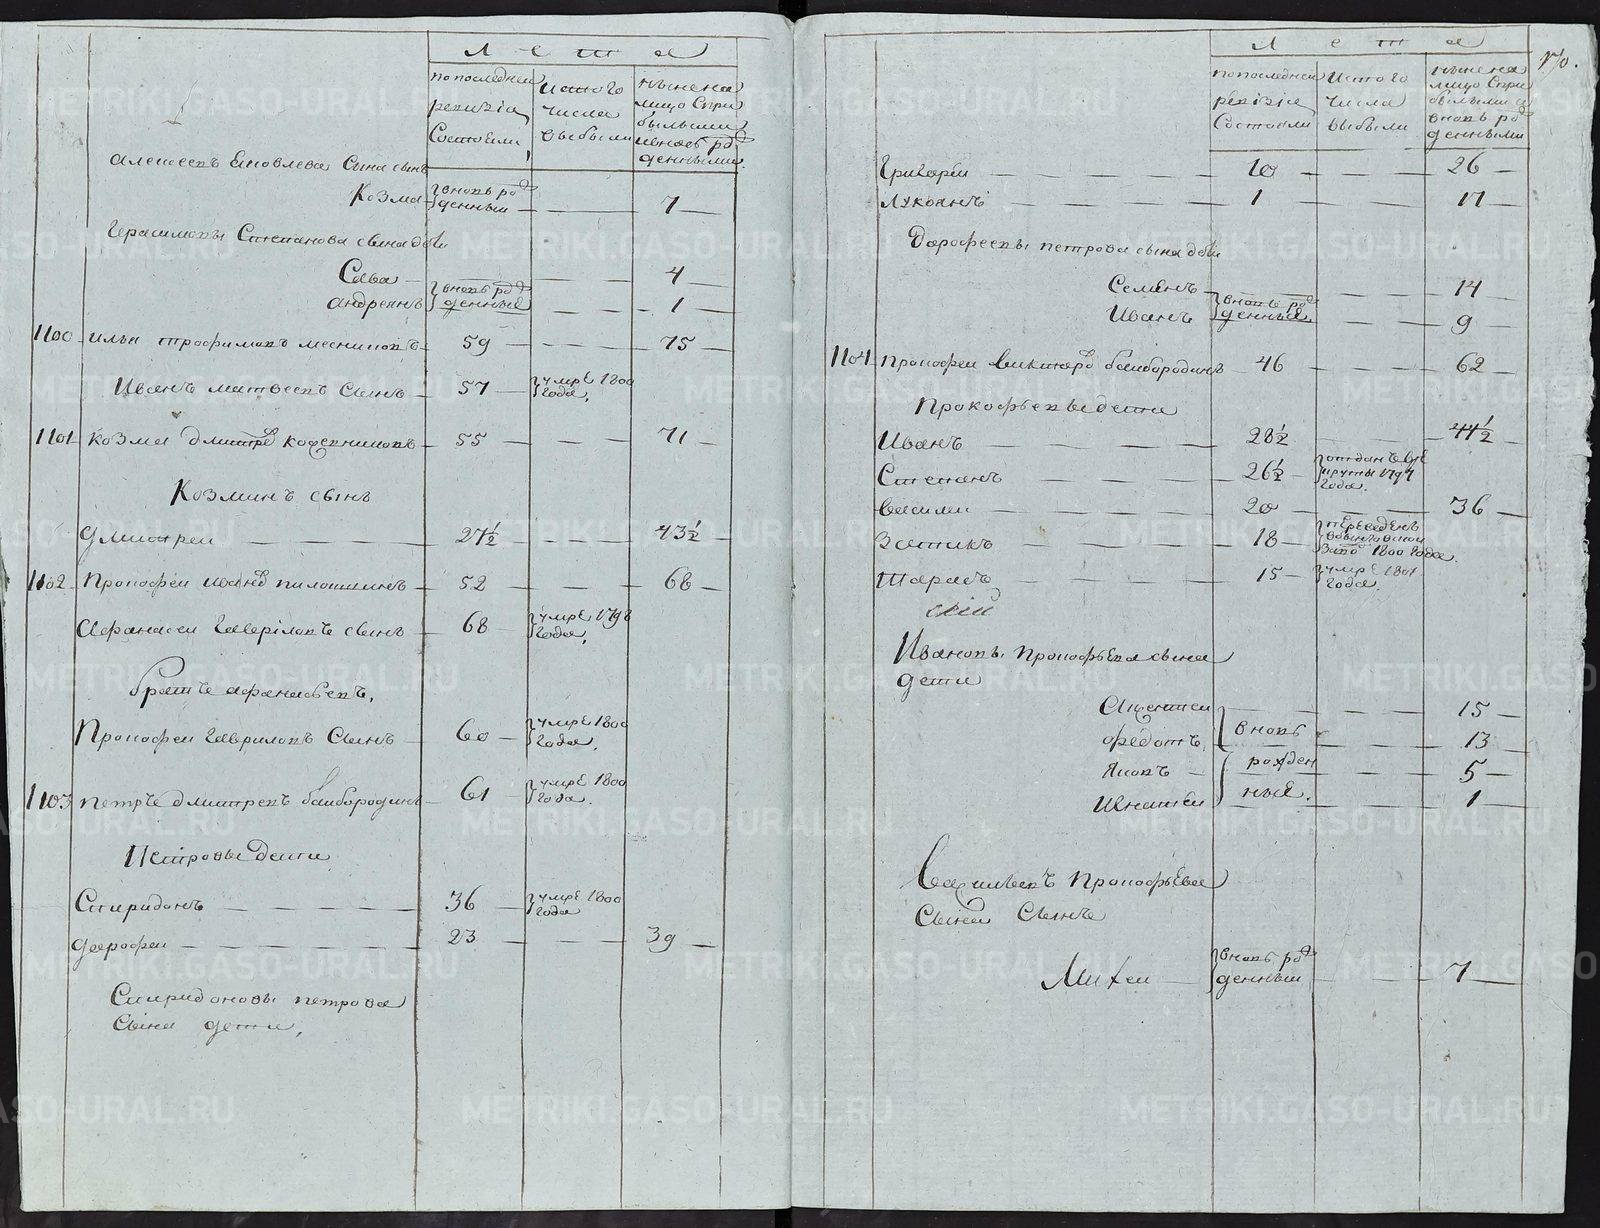 Лета
по последней ревизіи Состояли
Изтого числа выбыли
ныне на лицо Спри былыми и вновь рожденными
Алексеевъ Яковлева Сына сынъ
Козма вновь рожденный 7
Герасимовы Степанова сына дети
Сава 4
Андреянъ вновь рожденные 1
1100 Илья Трофимовъ месниковъ 59 75
Иванъ матвеевъ Сынъ 57 умре 1800 года.
1101 Козма дмитрев кожевниковъ 55 71
Козминъ сынъ
Дмитреи 27½ 43½
1102 Прокофеи Иванов пилошинъ 52 68
Афанасеи Гаврiловъ сынъ 68 умре 1798 года.
братъ афанасьевъ,
Прокофеи Гавриловъ Сынъ 60 умре 1800 года.
1103 Петръ дмитревъ баибородинъ 61 умре 1800 года.
Петровы дети
Спиридонъ 36 умре 1800 года
Дорофеи 23 39
Спиридоновы петрова
Сына дети,
170.
Лета
по последней ревизіи Состояли
Изтого числа выбыли
ныне на лицо Спри былыми и вновь рожденными
Григореи 10 26
Лукоянъ 1 17
Дорофеевы петрова сына дети
Семенъ 14
Иванъ вновь рожденные 9
1104 Прокофеи викторов баибородинъ 46 62
Прокофьевы дети
Иванъ 28½ 44½
Степанъ 26½ отданъ врекруты 1797 года.
Василеи 20 36
Зотикъ 18 переведенъ 1800 года.
Тарасъ 15 умре 1801 года.
Ивановы Прокофьева сына
дети
Аксентеи 15
Федотъ вновь 13
Яковъ рожден 5
Игнатеи ные. 1
Васильевъ Прокофьева
Сына Сынъ
Михеи вновь рожденный 7
METRIKI.GASO-URAL.RU